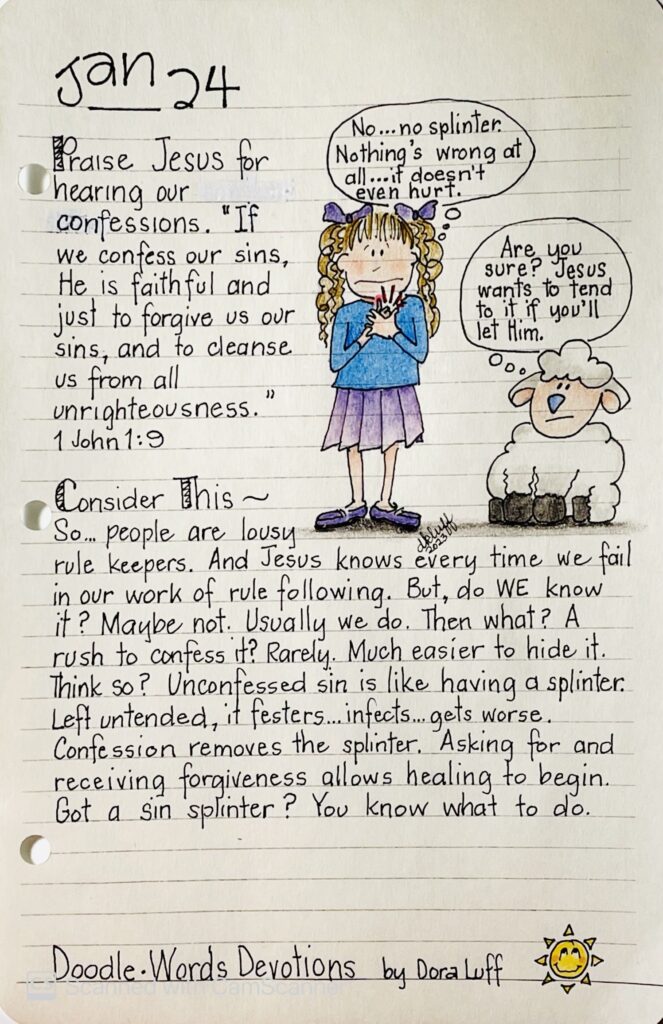 Jan 24
No...no splinter.
Nothing's wrong at
all...it doesn't
even hurt.
Praise Jesus for
hearing our
confessions. "If
we confess our sins,
He is faithful and
just to forgive us our
sins, and to cleanse
us from all
unrighteousness."
1 John 1:9
Are you
sure? Jesus
wants to tend
to it if you'll
let Him.
Consider This ~
So... people are lousy
rule keepers. And Jesus knows every time we fail
in our work of rule following. But, do WE know
it? Maybe not. Usually we do. Then what? A
rush to confess it? Rarely. Much easier to hide it.
Think so? Unconfessed sin is like having a splinter.
Left untended, it festers...infects...gets worse.
Confession removes the splinter. Asking for and
receiving forgiveness allows healing to begin.
Got a sin splinter? You know what to do.
dkluff
2023
Doodle·Words Devotions by Dora Luff
Scanned with CamScanner